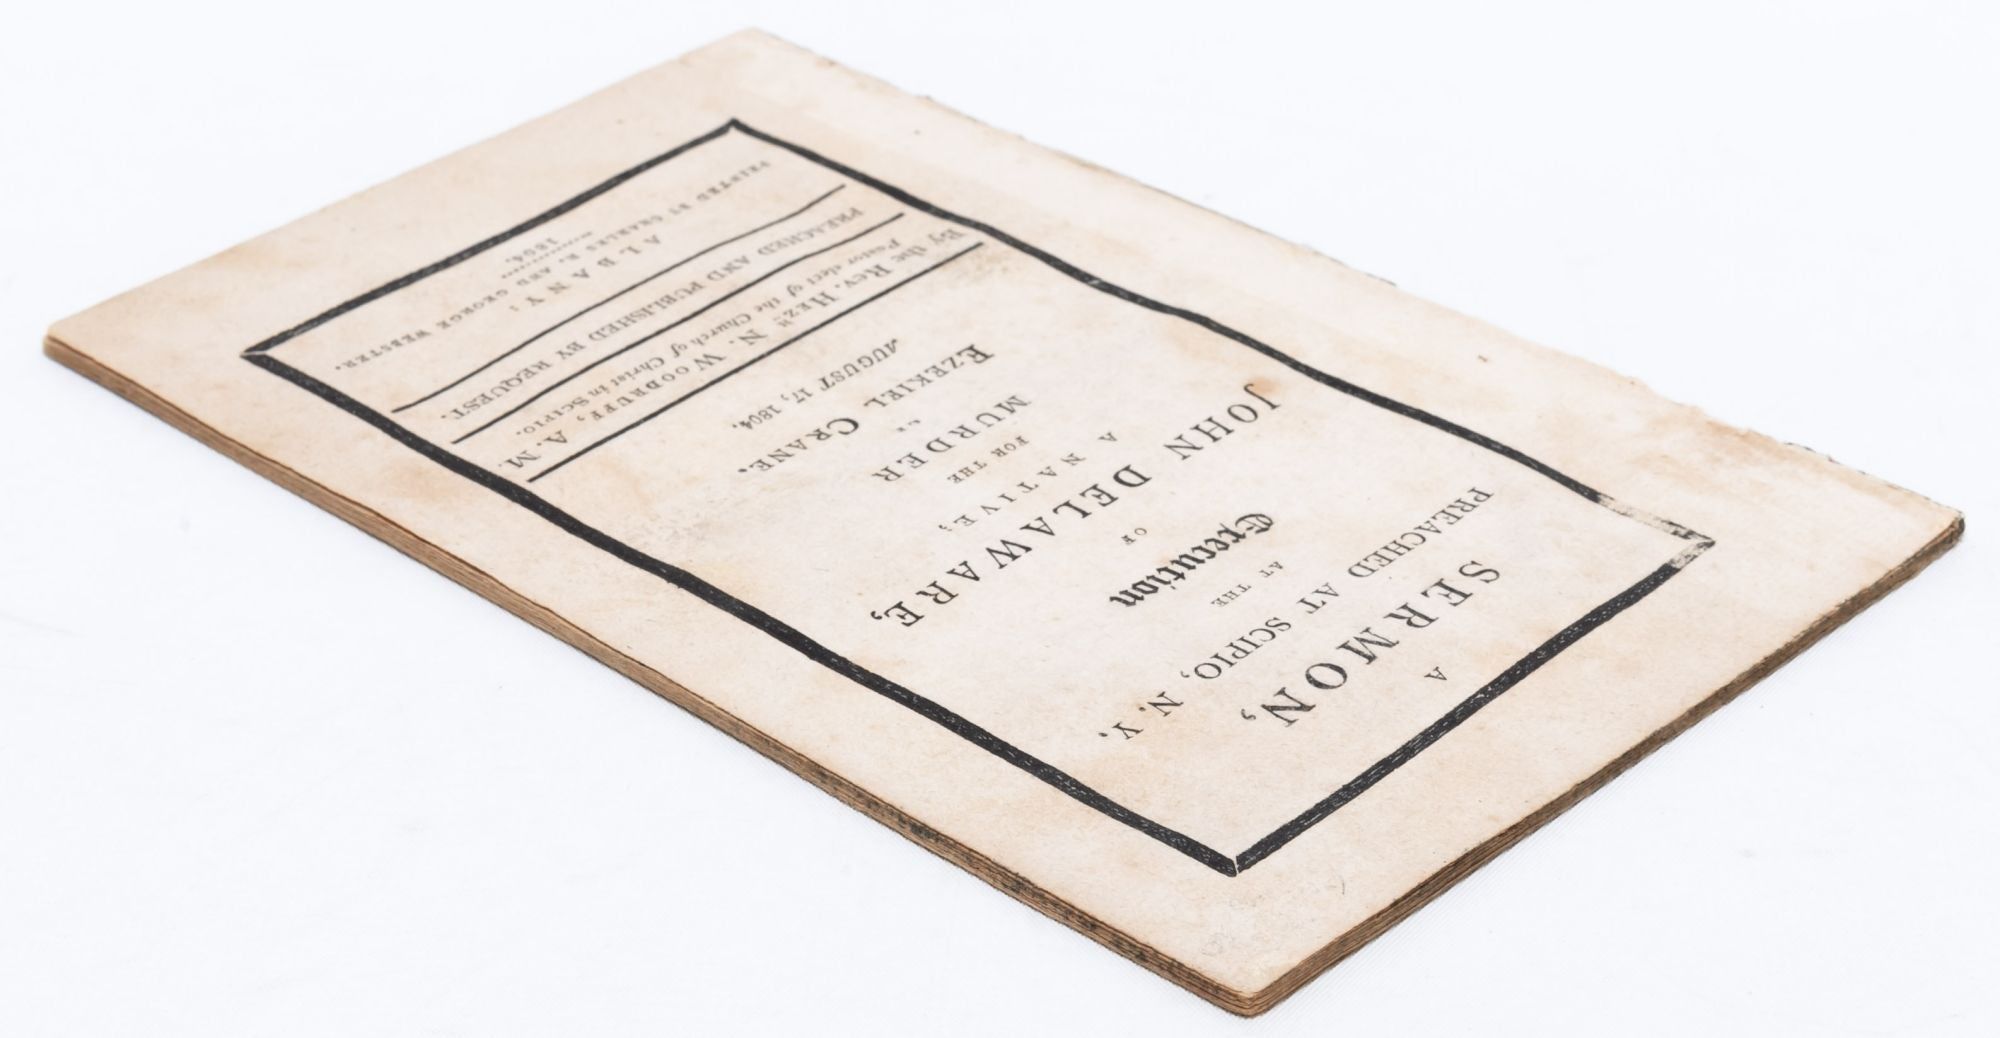 A
SERMON,
PREACHED AT SCIPIO, N. Y.
AT THE
Execution
OF
JOHN DELAWARE,
A NATIVE;
FOR THE
MURDER
OF
EZEKIEL CRANE.
AUGUST 17, 1804.
By the Rev. HEZH N. WOODRUFF, A. M.
Pastor elect of the Church of Christ in SCIPIO.
PREACHED AND PUBLISHED BY REQUEST.
ALBANY:
PRINTED BY CHARLES R. AND GEORGE WEBSTER.
1804.